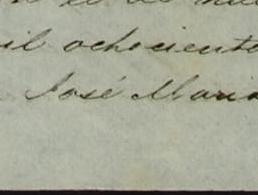 il ochociento
José Maria